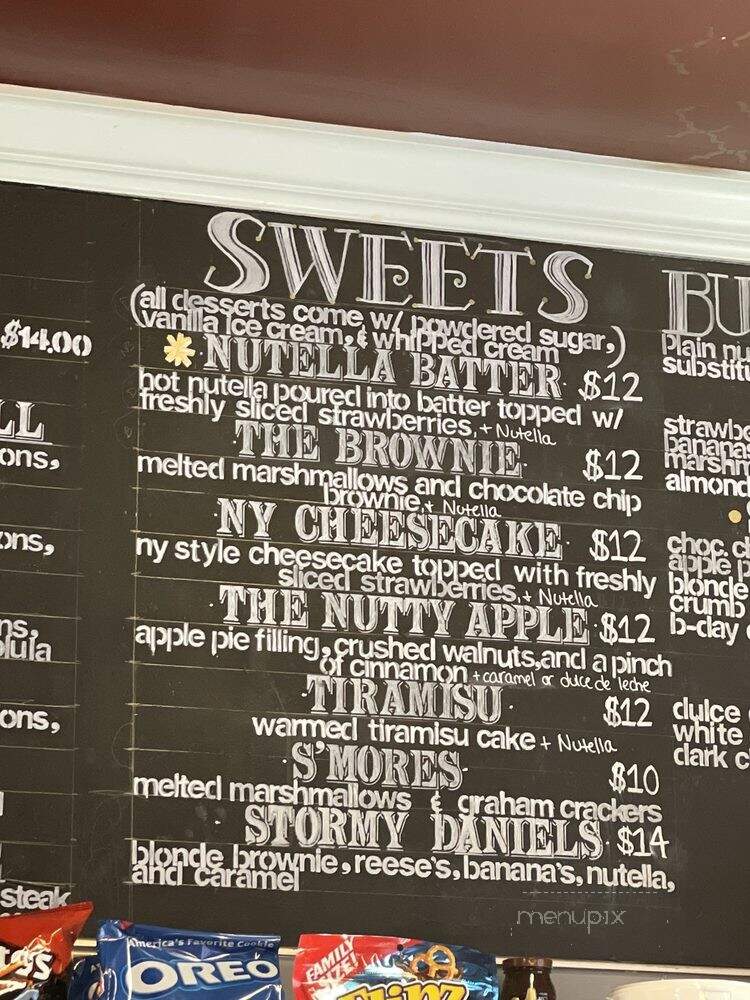 SWEETS
(all desserts come w/ powdered sugar,
vanilla ice cream, & whipped cream)
NUTELLA BATTER $12
hot nutella poured into batter topped w/
freshly sliced strawberries + Nutella
THE BROWNIE $12
melted marshmallows and chocolate chip
brownie + Nutella
NY CHEESECAKE $12
ny style cheesecake topped with freshly
sliced strawberries + Nutella
THE NUTTY APPLE $12
apple pie filling, crushed walnuts, and a pinch
of cinnamon + caramel or dulce de leche
TIRAMISU $12
warmed tiramisu cake + Nutella
S'MORES $10
melted marshmallows & graham crackers
STORMY DANIELS $14
blonde brownie, reese's, banana's, nutella,
and caramel
$14.00
LL
ons,
ons,
ns,
ons,
steak
BU
plain nu
substitu
strawbe
bananas
marshm
almond
choc. c
apple p
blonde
crumb
b-day
dulce
white
dark c
menupix
America's Favorite Cookie
OREO
FAMILY
SIZE!
Flipz